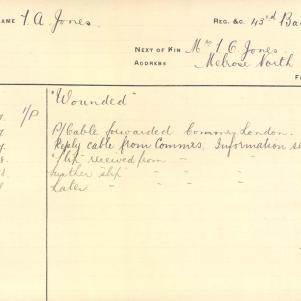 NAME T. A. Jones. REG. &C. 43rd Ba
NEXT OF KIN Mrs T. E. Jones.
ADDRESS Melrose North
"Wounded"
1/P
P/Cable forwarded Commrs London.
Reply cable from Commrs. Information se
"slip" received from " "
further slip " " "
Later " " "